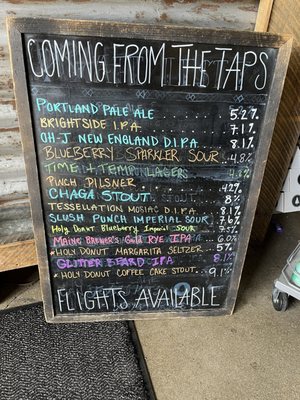 COMING FROM THE TAPS
PORTLAND PALE ALE 5.2%
BRIGHTSIDE I.P.A. 7.1%
OH-J NEW ENGLAND D.I.P.A. 8.1%
BLUEBERRY SPARKLER SOUR 4.8%
TIME + TEMP LAGERS 4.8%
PUNCH PILSNER 4.2%
CHAGA STOUT 8%
TESSELLATION MOSIAC D.I.P.A. 8.1%
SLUSH PUNCH IMPERIAL SOUR 7.6%
HOLY DONUT BLUEBERRY IMPERIAL SOUR 7.5%
MAINE BREWER'S GOLD RYE IPA 6.0%
*HOLY DONUT MARGARITA SELTZER 5%
GLITTER BEARD IPA 8.1%
*HOLY DONUT COFFEE CAKE STOUT 9.1%
FLIGHTS AVAILABLE